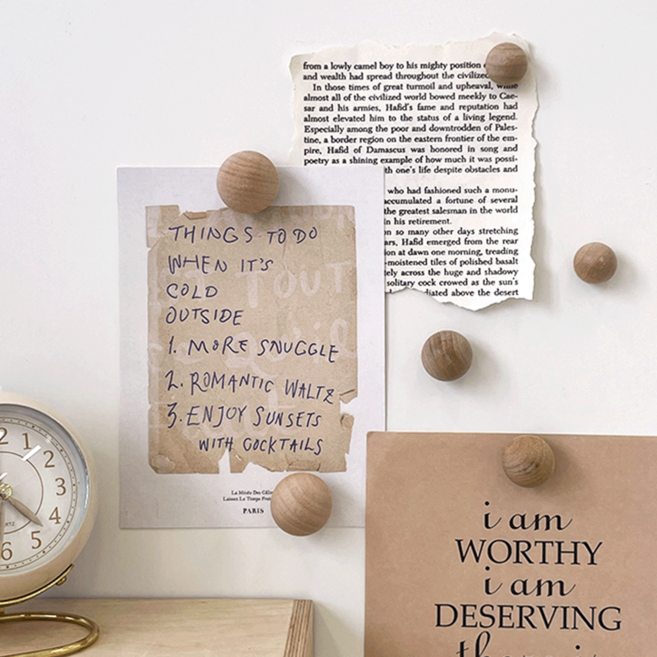 from a lowly camel boy to his mighty position
and wealth had spread throughout the civilized
In those times of great turmoil and upheaval, while
almost all of the civilized world bowed meekly to Cae-
sar and his armies, Hafid's fame and reputation had
almost elevated him to the status of a living legend.
Especially among the poor and downtrodden of Pales-
tine, a border region on the eastern frontier of the em-
pire, Hafid of Damascus was honored in song and
poetry as a shining example of how much it was possi-
th one's life despite obstacles and
who had fashioned such a monu-
accumulated a fortune of several
the greatest salesman in the world
in his retirement.
so many other days stretching
ars, Hafid emerged from the rear
ion at dawn one morning, treading
-moistened tiles of polished basalt
tely across the huge and shadowy
solitary cock crowed as the sun's
diated above the desert
THINGS TO DO
WHEN IT'S
COLD
OUTSIDE
1. MORE SNUGGLE
2. ROMANTIC WALTZ
3. ENJOY SUNSETS
WITH COCKTAILS
PARIS
12
1
2
3
4
5
6
QUARTZ
i am
WORTHY
i am
DESERVING